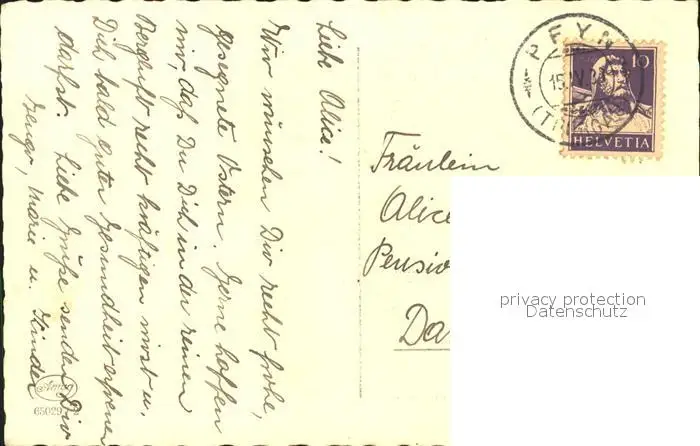 Liebe Alice!
Wir wünschen Dir recht frohe,
gesegnete Ostern. Gerne hoffen
wir, daß Du Dich in der reinen
Bergluft recht kräftigen wirst u.
Dich bald guter Gesundheit erfreuen
darfst. Liebe Grüße senden Dir
Marie u. Kinder
Fräulein
Alice
Pensio
Da
PFYN
15.IV.
(THURGAU)
10
HELVETIA
privacy protection
Datenschutz
Amag
65029